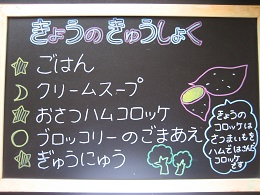 きょうのきゅうしょく
ごはん
クリームスープ
おさつハムコロッケ
ブロッコリーのごまあえ
ぎゅうにゅう
きょうの
コロッケは
さつまいもを
ハムではさんだ
コロッケ
です